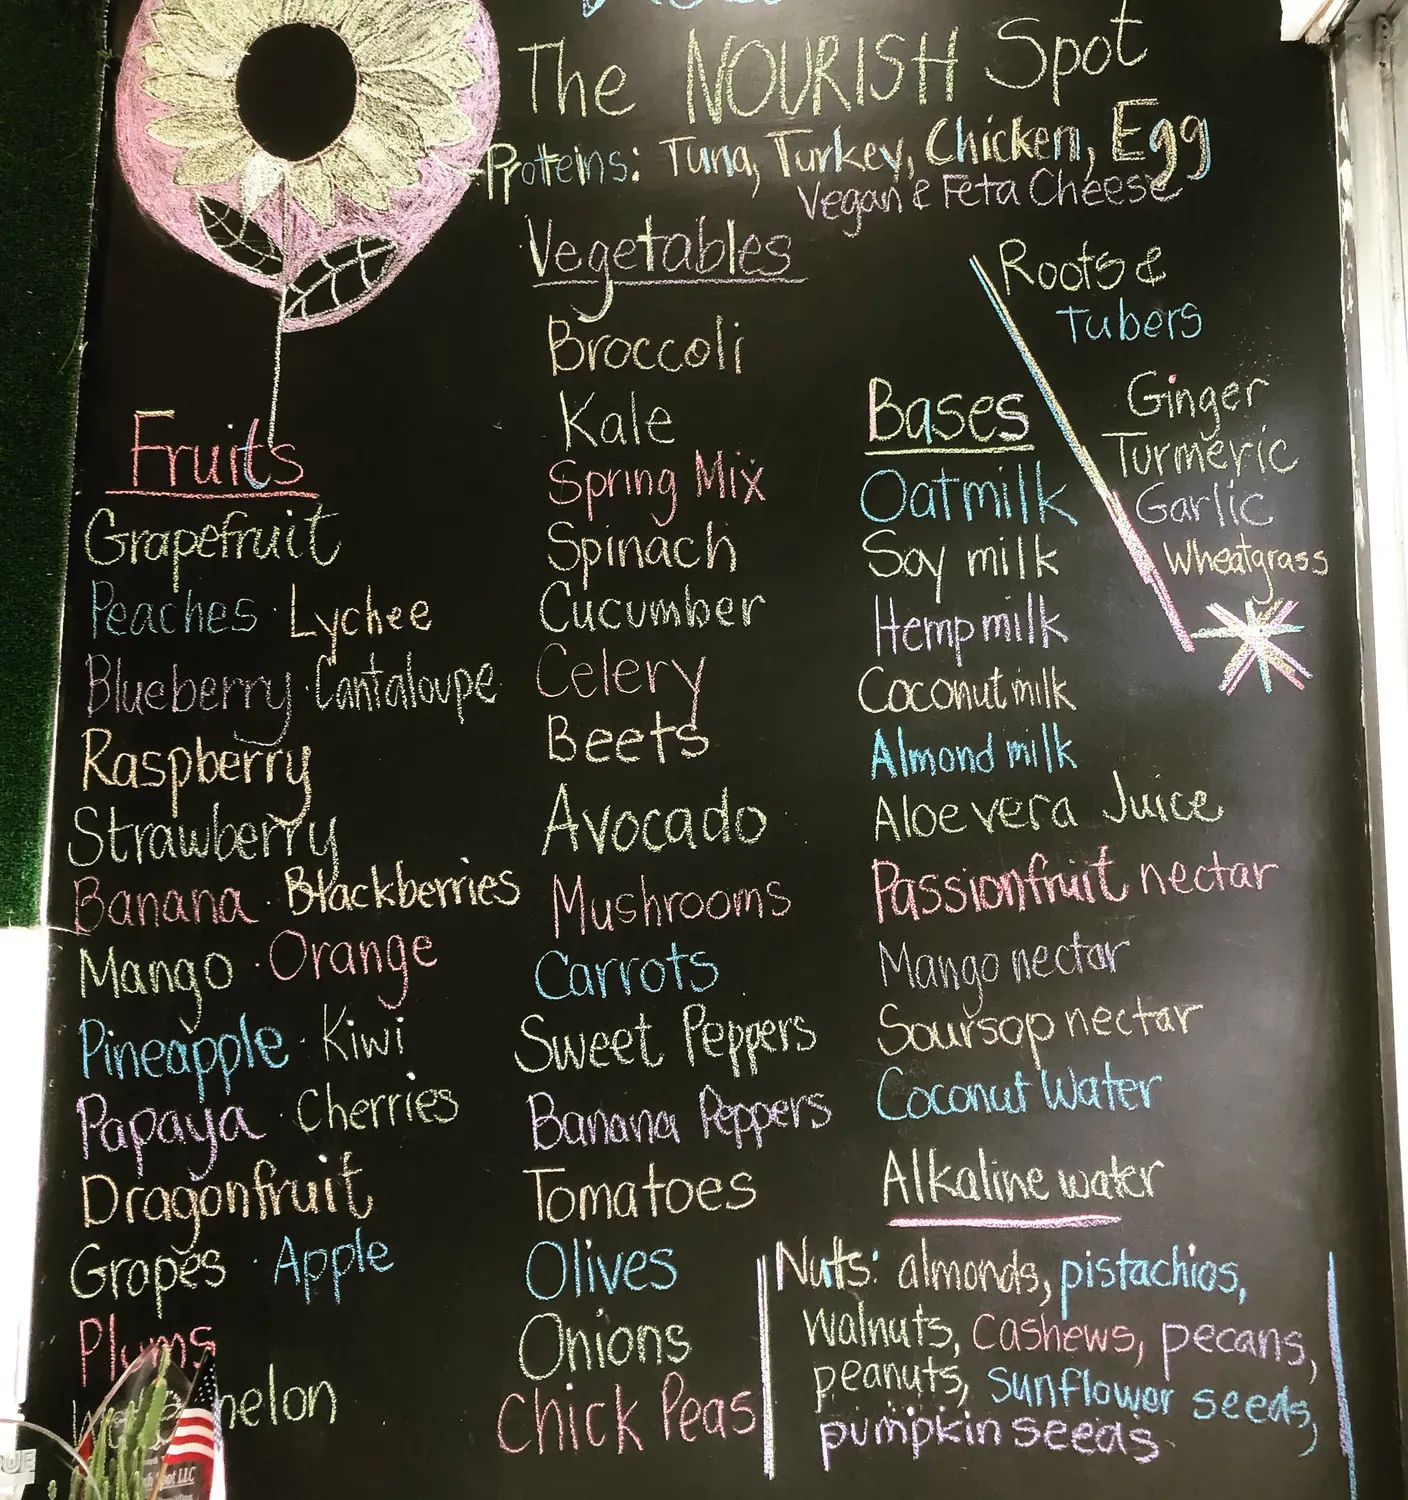 The NOURISH Spot
Proteins: Tuna, Turkey, Chicken, Egg
Vegan & Feta Cheese
Fruits
Grapefruit
Peaches · Lychee
Blueberry · Cantaloupe
Raspberry
Strawberry
Banana · Blackberries
Mango · Orange
Pineapple · Kiwi
Papaya · Cherries
Dragonfruit
Grapes · Apple
Plums
Vegetables
Broccoli
Kale
Spring Mix
Spinach
Cucumber
Celery
Beets
Avocado
Mushrooms
Carrots
Sweet Peppers
Banana Peppers
Tomatoes
Olives
Onions
Chick Peas
Bases
Oatmilk
Soy milk
Hemp milk
Coconut milk
Almond milk
Aloe vera Juice
Passionfruit nectar
Mango nectar
Soursop nectar
Coconut Water
Alkaline water
Roots &
Tubers
Ginger
Turmeric
Garlic
Wheatgrass
Nuts: almonds, pistachios,
walnuts, cashews, pecans,
peanuts, sunflower seeds,
pumpkin seeds
LLC